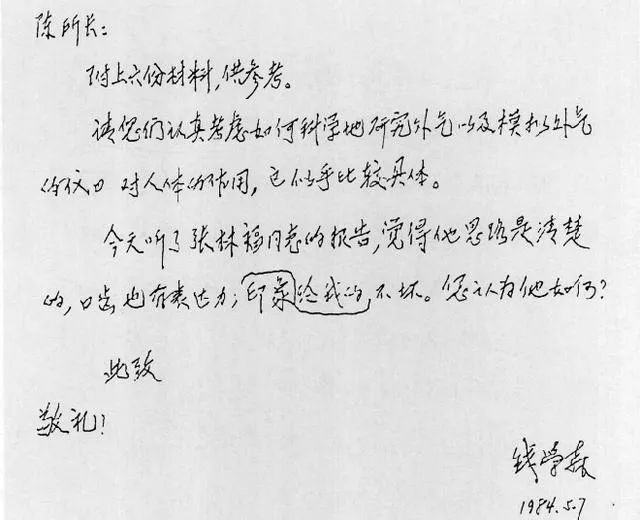 陈所长:
附上六份材料,供参考。
请您们认真考虑如何科学地研究外气以及模拟外气
的仪口 对人体的作用,已似乎比较具体。
今天听了张林福同志的报告,觉得他思路是清楚
的,口齿也有表达力;印象给我的,不坏。您认为他如何?
此致
敬礼!
钱学森
1984.5.7